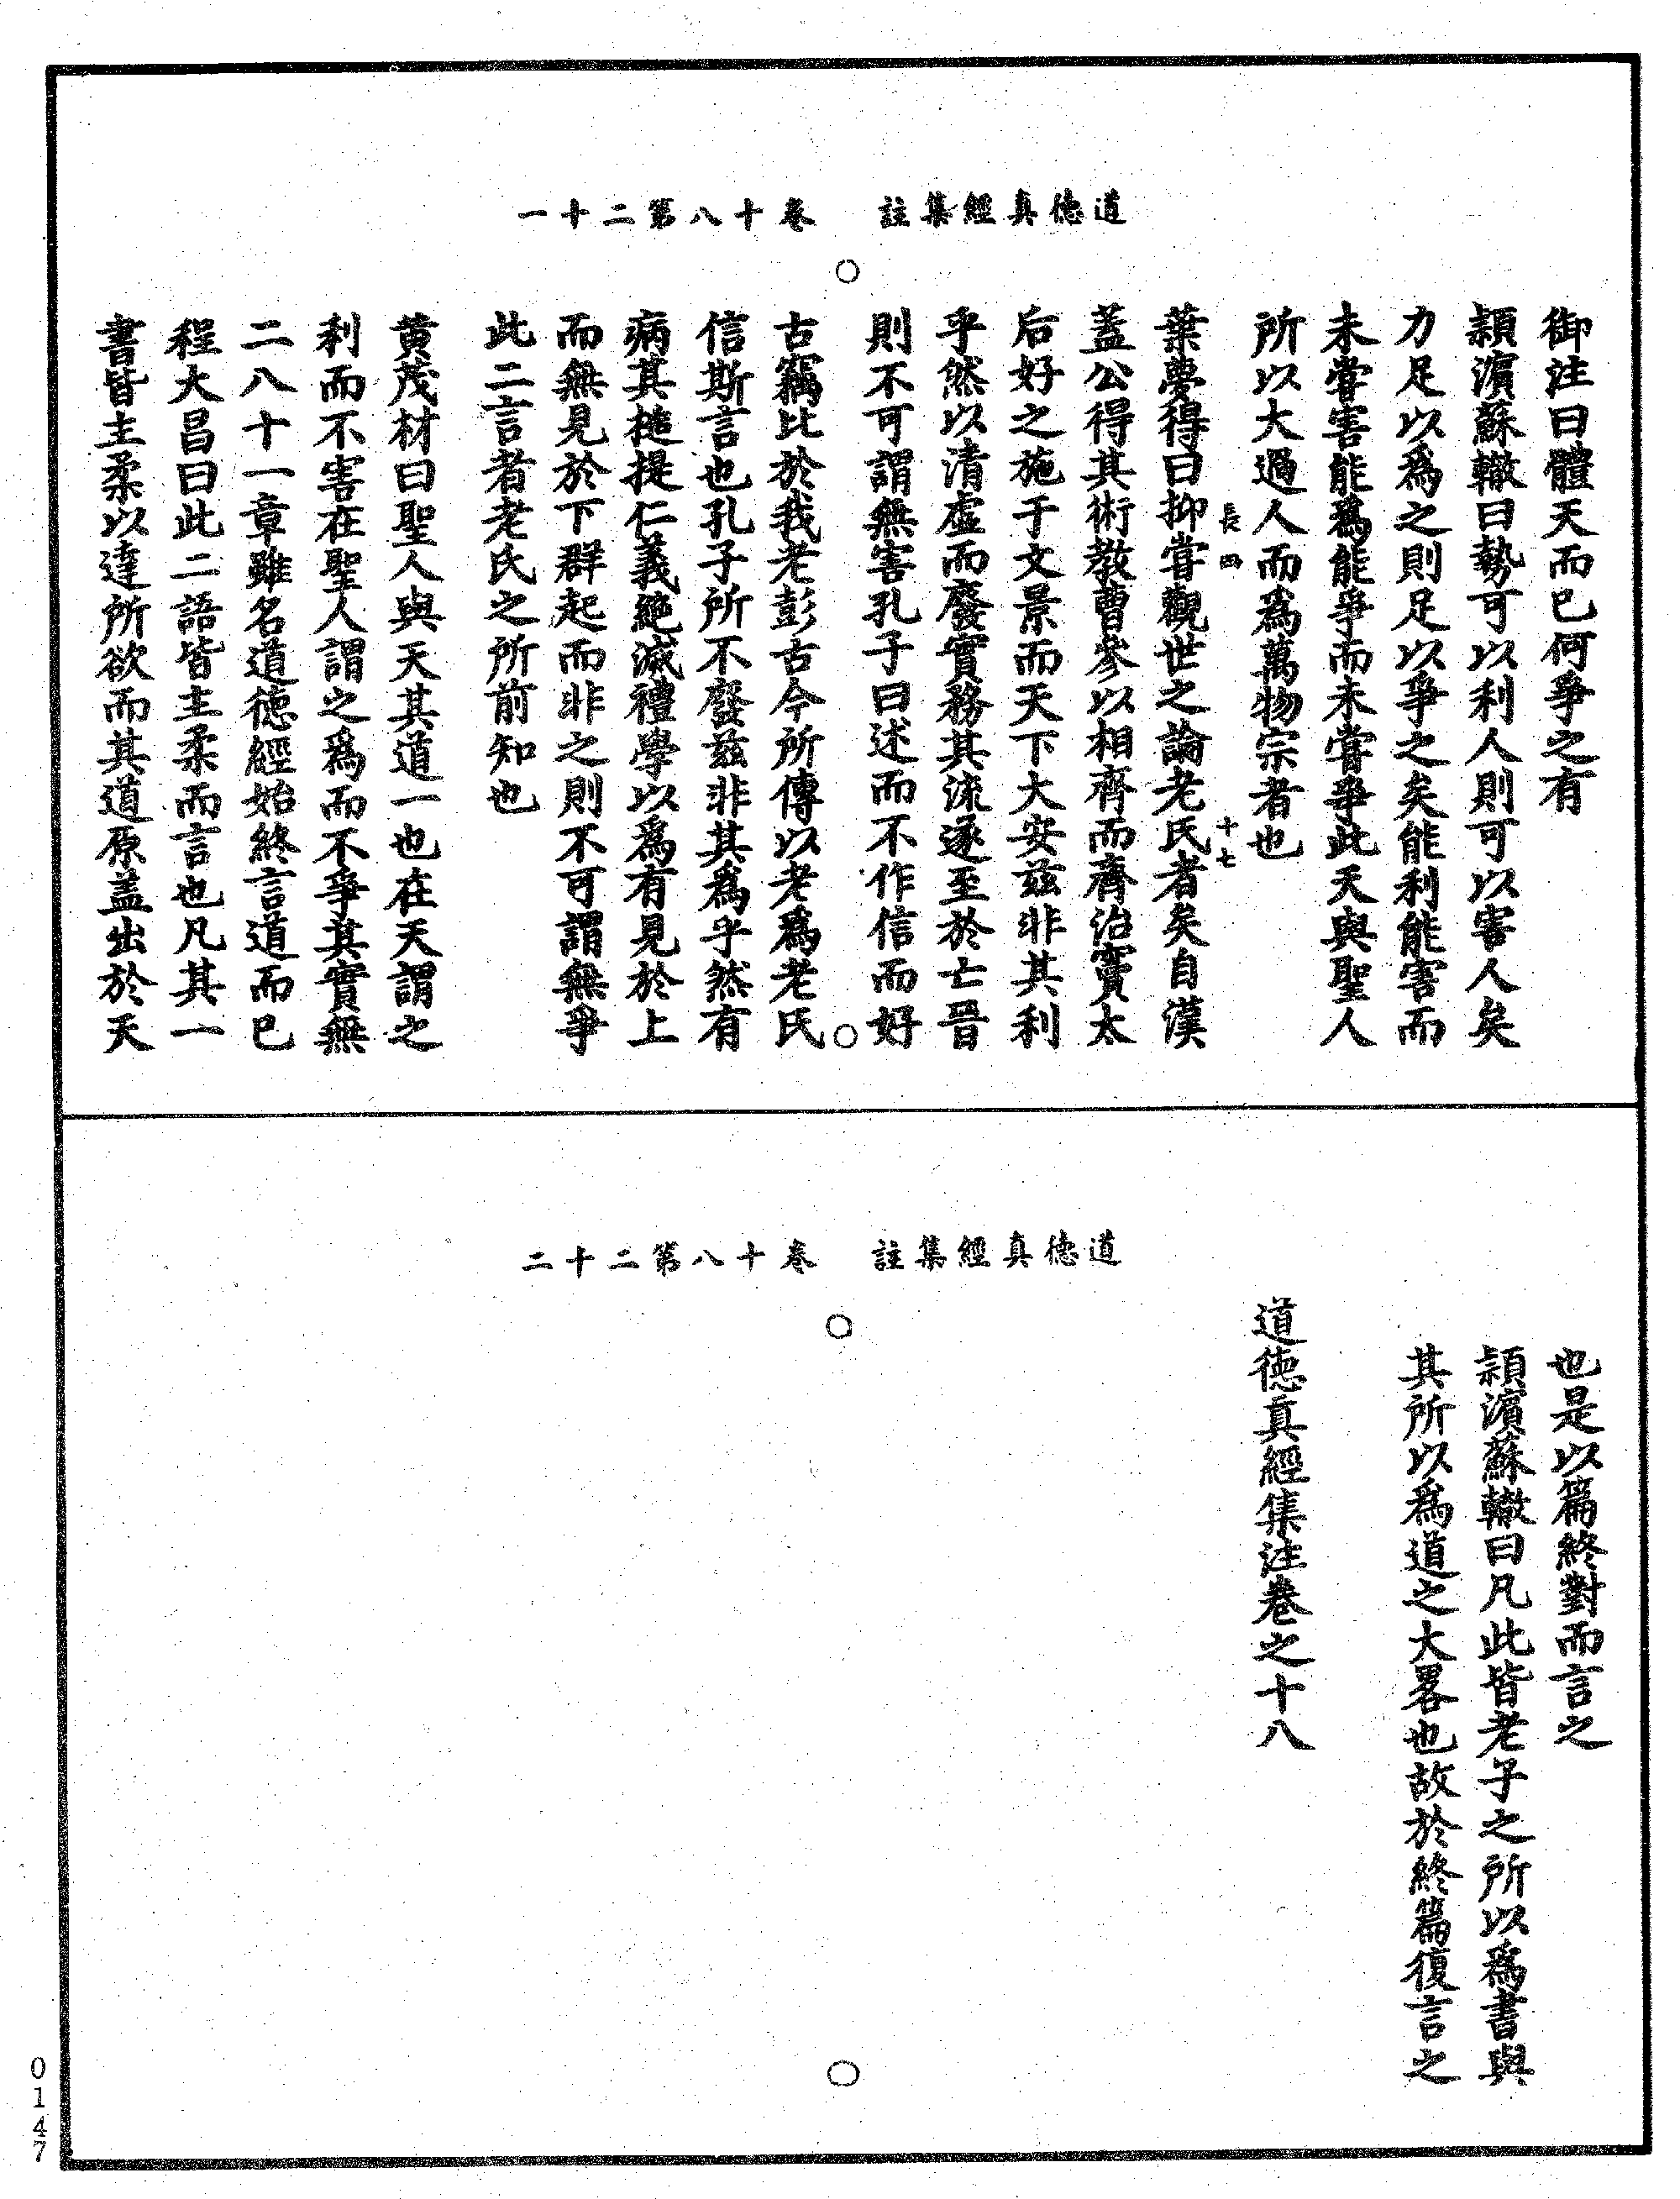 道德真經集註　卷十八第二十一
御注曰體天而已何爭之有
頴濵蘇轍曰勢可以利人則可以害人矣
力足以爲之則足以爭之矣能利能害而
未嘗害能爲能爭而未嘗爭此天與聖人
所以大過人而爲萬物宗者也
長四　十七
葉夢得曰抑嘗觀世之論老氏者矣自漢
蓋公得其術教曹參以相齊而齊治竇太
后好之施于文景而天下大安兹非其利
乎然以清虛而廢實務其流遂至於亡晉
則不可謂無害孔子曰述而不作信而好
古竊比於我老彭古今所傳以老爲老氏
信斯言也孔子所不廢兹非其爲乎然有
病其槌提仁義絶滅禮學以爲有見於上
而無見於下群起而非之則不可謂無爭
此二言者老氏之所前知也
黄茂材曰聖人與天其道一也在天謂之
利而不害在聖人謂之爲而不爭其實無
二八十一章雖名道德經始終言道而已
程大昌曰此二語皆主柔而言也凡其一
書皆主柔以達所欲而其道原盖出於天
道德真經集註　卷十八第二十二
也是以篇終對而言之
頴濵蘇轍曰凡此皆老子之所以爲書與
其所以爲道之大畧也故於終篇復言之
道德真經集注卷之十八
0147